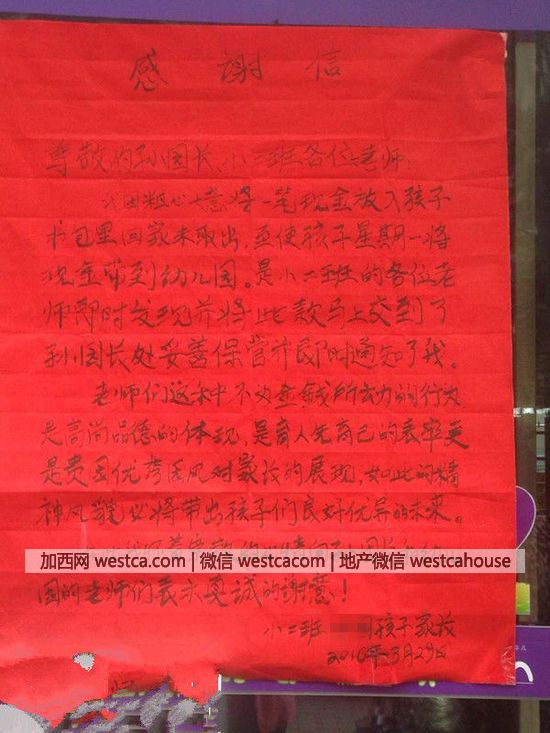 感 谢 信
尊敬的孙园长、小二班各位老师：
我因粗心大意将一笔现金放入孩子
书包里回家未取出，至使孩子星期一将
现金带到幼儿园。是小二班的各位老
师即时发现并将此款马上交到了
孙园长处妥善保管并即时通知了我。
老师们这种不为金钱所动的行为
是高尚品德的体现，是育人先育己的表率更
是贵园优秀园风对家长的展现，如此的精
神风貌必将带出孩子们良好优异的未来。
加西网 westca.com | 微信 westcacom | 地产微信 westcahouse
园的老师们表示真诚的谢意！
小二班 孩子家长
2016年3月29日